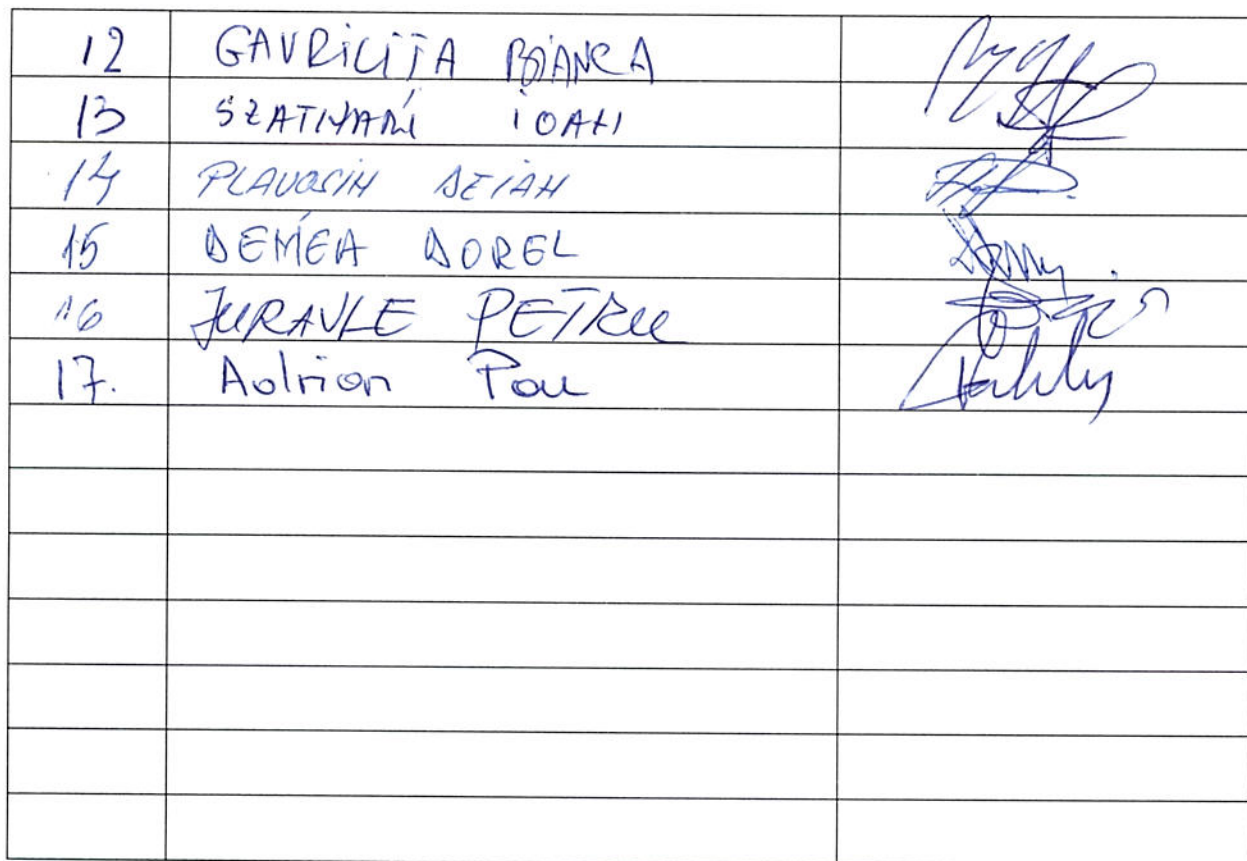 12 GAVRILIȚA BIANCA
13 SZATMARI IOAN
14 PLAVOSIN DEIAN
15 DEMEA DOREL
16 JURAVLE PETRU
17. Adrian Pau